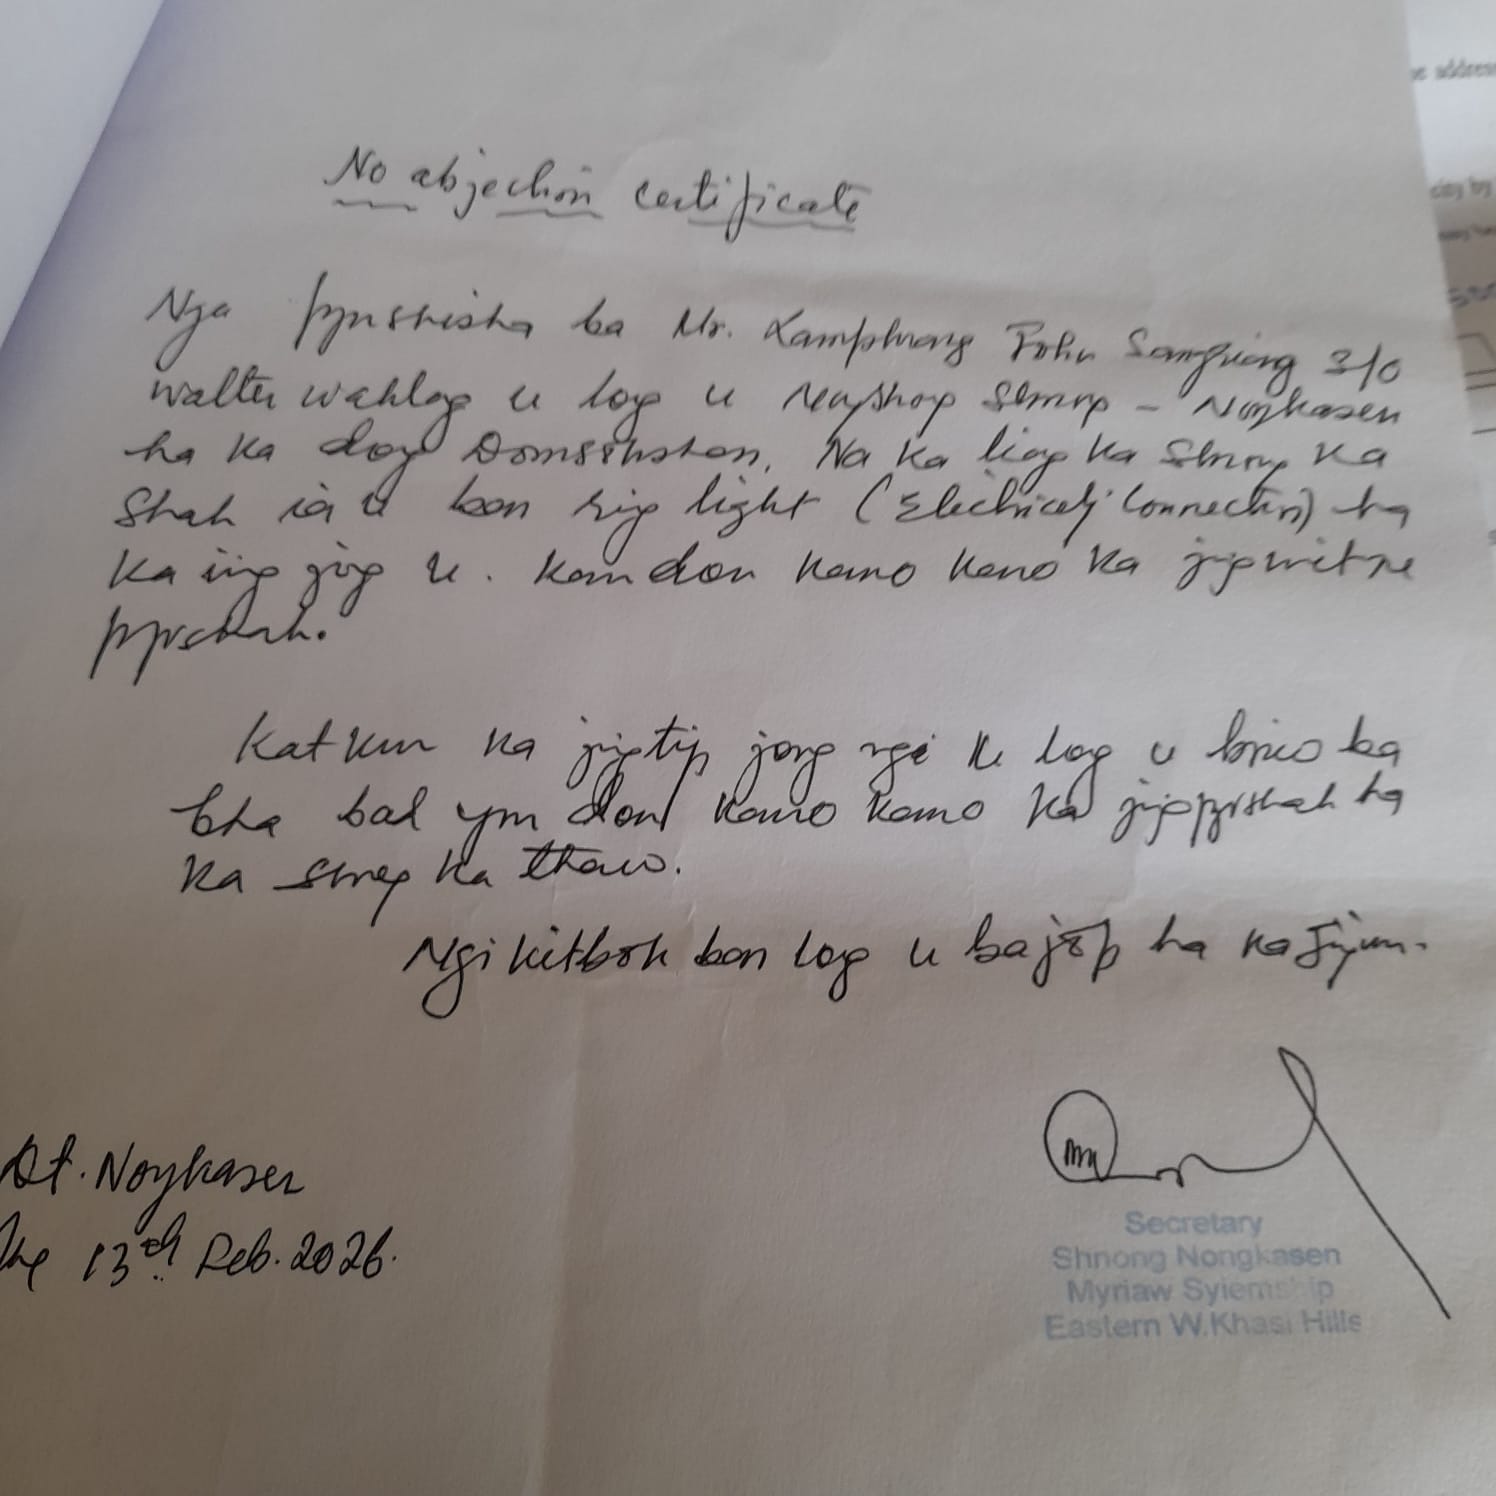 No abjection certificate
Nga pynshisha ba Mr. Lamphrang John Sangriang S/O
Walter Wahlang u long u nongshong shnong – Nongkasen
ha ka dong Domsohshan, Na ka liang ka Shnong ka
Shah ia u ban ring light (Electricity Connection) ha
ka iing jong u. kam don kano kano ka jingwitre
pyrshah.
Katkum ka jingtip jong ngi u long u briew ba
bha bad ym don kano kano ka jingpyrshah ha
ka shnong ka thaw.
Ngi kitbok ban long u ba jop ha ka jingim.
Dt. Nongkasen
The 13th Feb. 2026.
Secretary
Shnong Nongkasen
Myriaw Syiemship
Eastern W.Khasi Hills
address